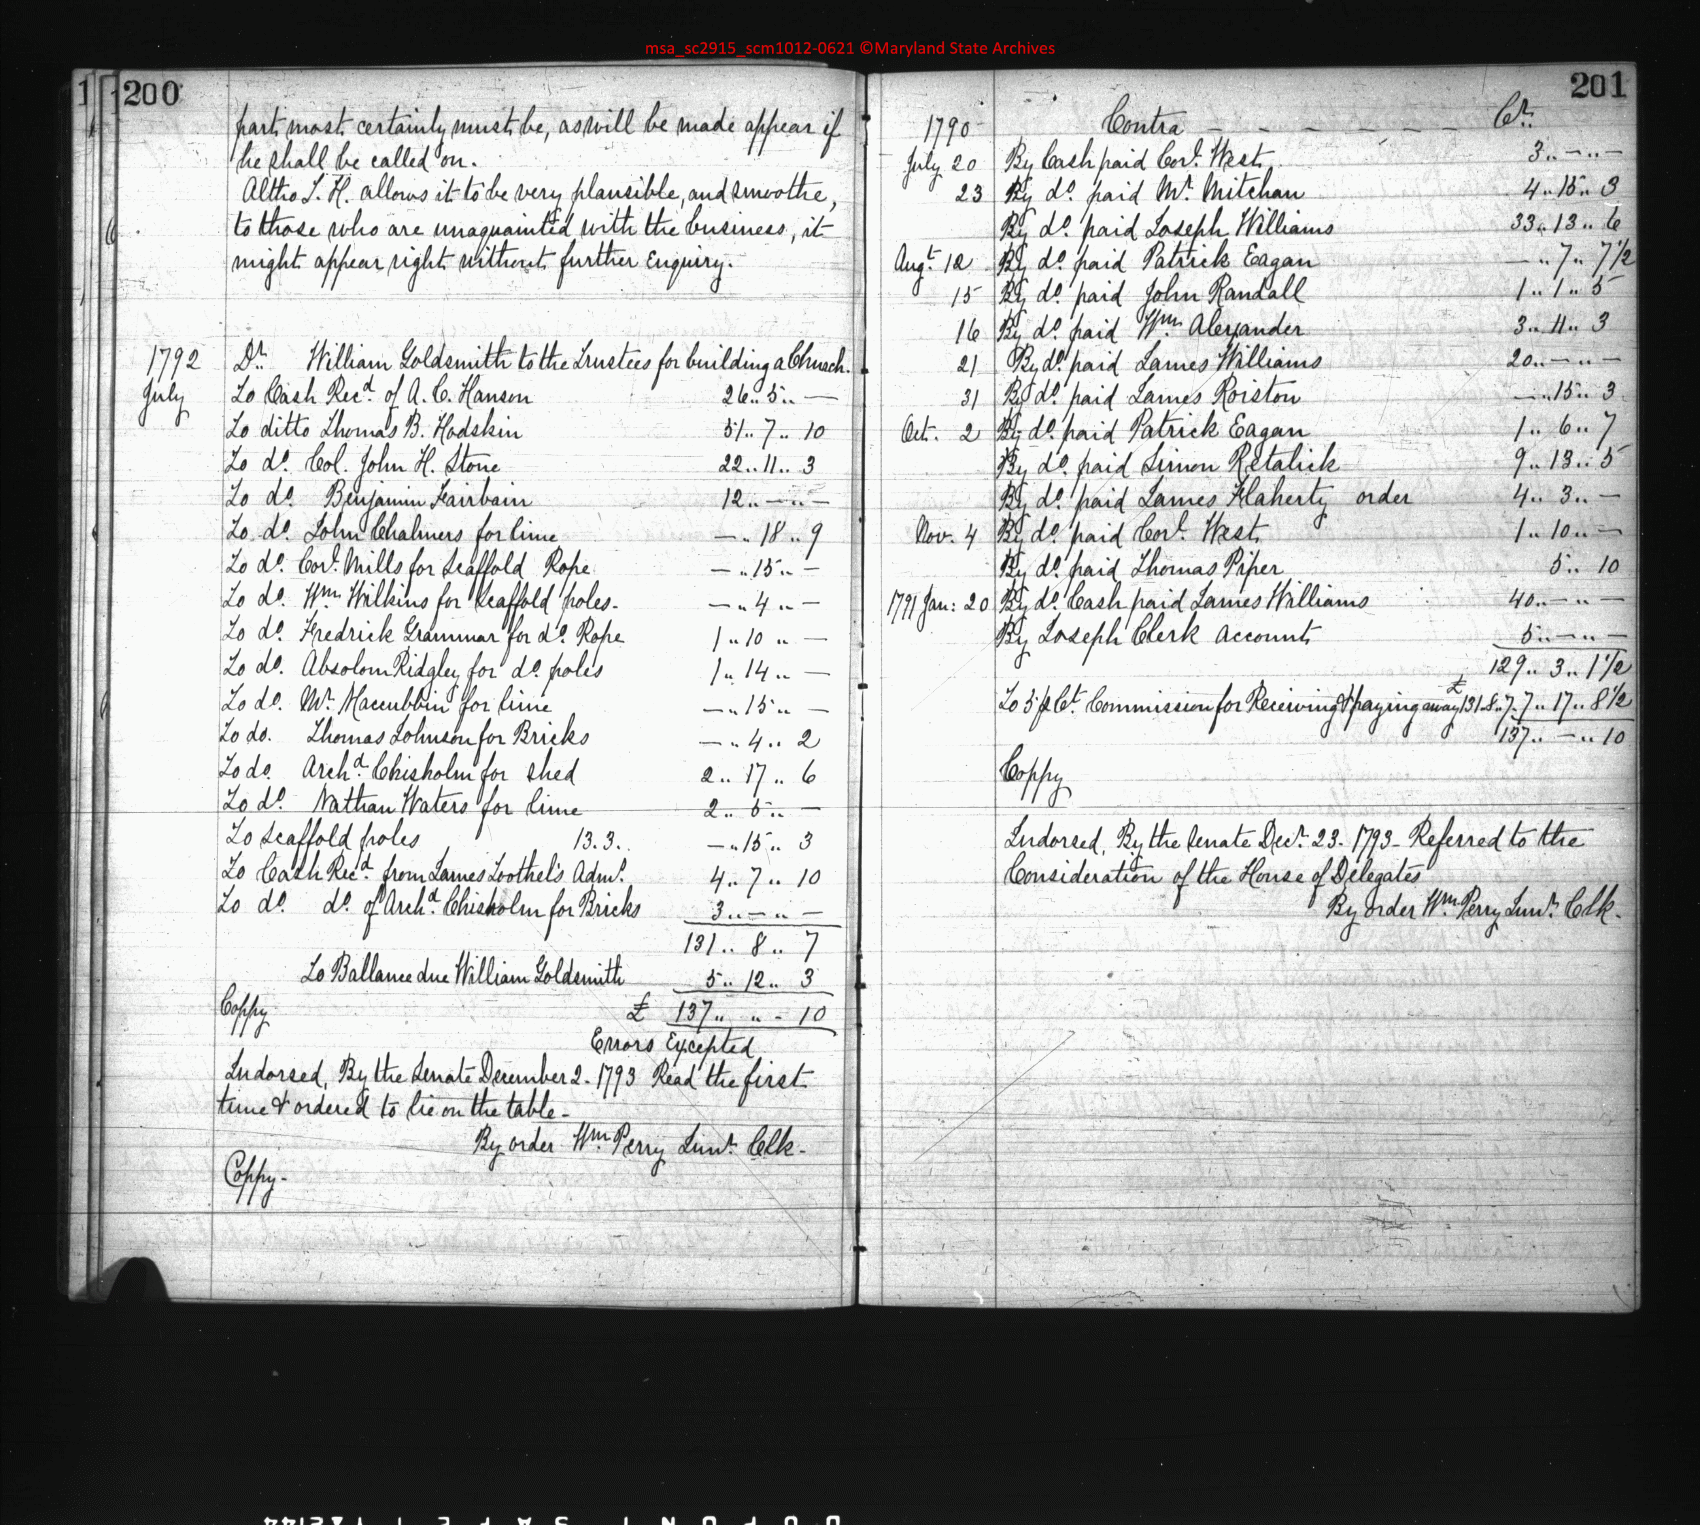 msa_sc2915_scm1012-0621 ©Maryland State Archives
200
part most certainly must be, as will be made appear if
he shall be called on.
Altho I. H. allows it to be very plausible, and smoothe,
to those who are unaquainted with the business, it
might appear right without further Enquiry.
1792 Dr. William Goldsmith to the Trustees for building a Church.
July To Cash Recd. of A. C. Hanson 26.. 5.. —
To ditto Thomas B. Hodskin 51.. 7.. 10
To do. Col. John H. Stone 22.. 11.. 3
To do. Benjamin Fairbain 12.. —.. —
To do. John Chalmers for lime —.. 18.. 9
To do. Cor. Mills for Scaffold Rope —.. 15.. —
To do. Wm. Wilkins for Scaffold poles. —.. 4.. —
To do. Fredrick Grammar for do. Rope 1.. 10.. —
To do. Absolom Ridgley for do. poles 1.. 14.. —
To do. Mr. Maccubbin for lime —.. 15.. —
To do. Thomas Johnson for Bricks —.. 4.. 2
To do. Archd. Chisholm for shed 2.. 17.. 6
To do. Nathan Waters for lime 2.. 5.. —
To Scaffold poles 13.3.. —.. 15.. 3
To Cash Recd. from James Toothel's Adm. 4.. 7.. 10
To do. do. of Archd. Chisholm for Bricks 3.. —.. —
131.. 8.. 7
To Ballance due William Goldsmith 5.. 12.. 3
Coppy £ 137.. ..- 10
Errors Excepted
Indorsed, By the Senate December 2. 1793 Read the first
time & ordered to lie on the table-
By order Wm. Perry Junr. Clk-
Coppy-
201
1790 Contra - - - - - - - Cr.
July 20 By Cash paid Cor. West 3.. —.. —
23 By do. paid Mr. Mitchan 4.. 15.. 3
By do. paid Joseph Williams 33.. 13.. 6
Augt. 12 By do. paid Patrick Eagan —.. 7.. 7 1/2
15 By do. paid John Randall 1.. 1.. 5
16 By do. paid Wm. Alexander 3.. 11.. 3
21 By do. paid James Williams 20.. —.. —
31 By do. paid James Roiston —.. 15.. 3
Oct. 2 By do. paid Patrick Eagan 1.. 6.. 7
By do. paid Simon Retalick 9.. 13.. 5
By do. paid James Flaherty order 4.. 3.. —
Nov. 4 By do. paid Cor. West 1.. 10.. —
By do. paid Thomas Piper 5.. 10
1791 Jan: 20 By do. Cash paid James Williams 40.. —.. —
By Joseph Clerk Account 5.. —.. —
129.. 3.. 1 1/2
To 5 p Ct. Commission for Receiving & paying away £131.8..7. 7.. 17.. 8 1/2
137.. —.. 10
Coppy
Indorsed, By the Senate Decr. 23. 1793- Referred to the
Consideration of the House of Delegates
By order Wm. Perry Junr. Clk-